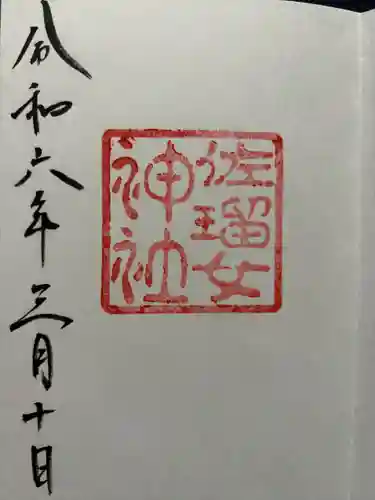 佐瑠女
神社
令和六年三月十日